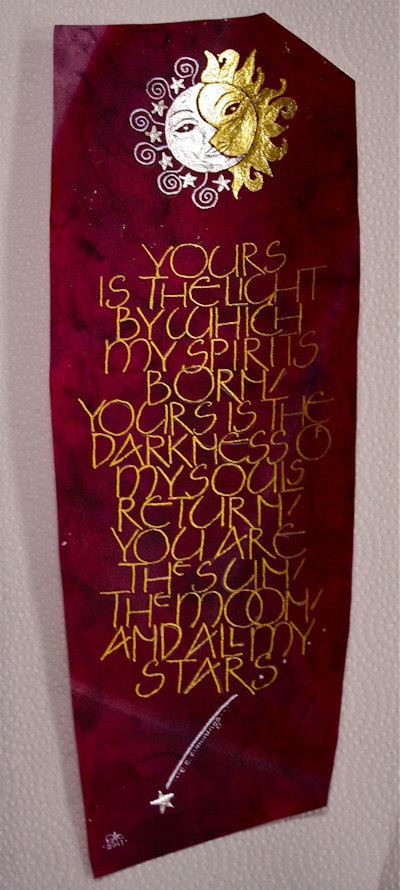 YOURS
IS THE LIGHT
BY WHICH
MY SPIRITS
BORN/
YOURS IS THE
DARKNESS O
MY SOULS
RETURN/
YOU ARE
THE SUN/
THE MOON/
AND ALL MY
STARS
E.E. CUMMINGS
2011